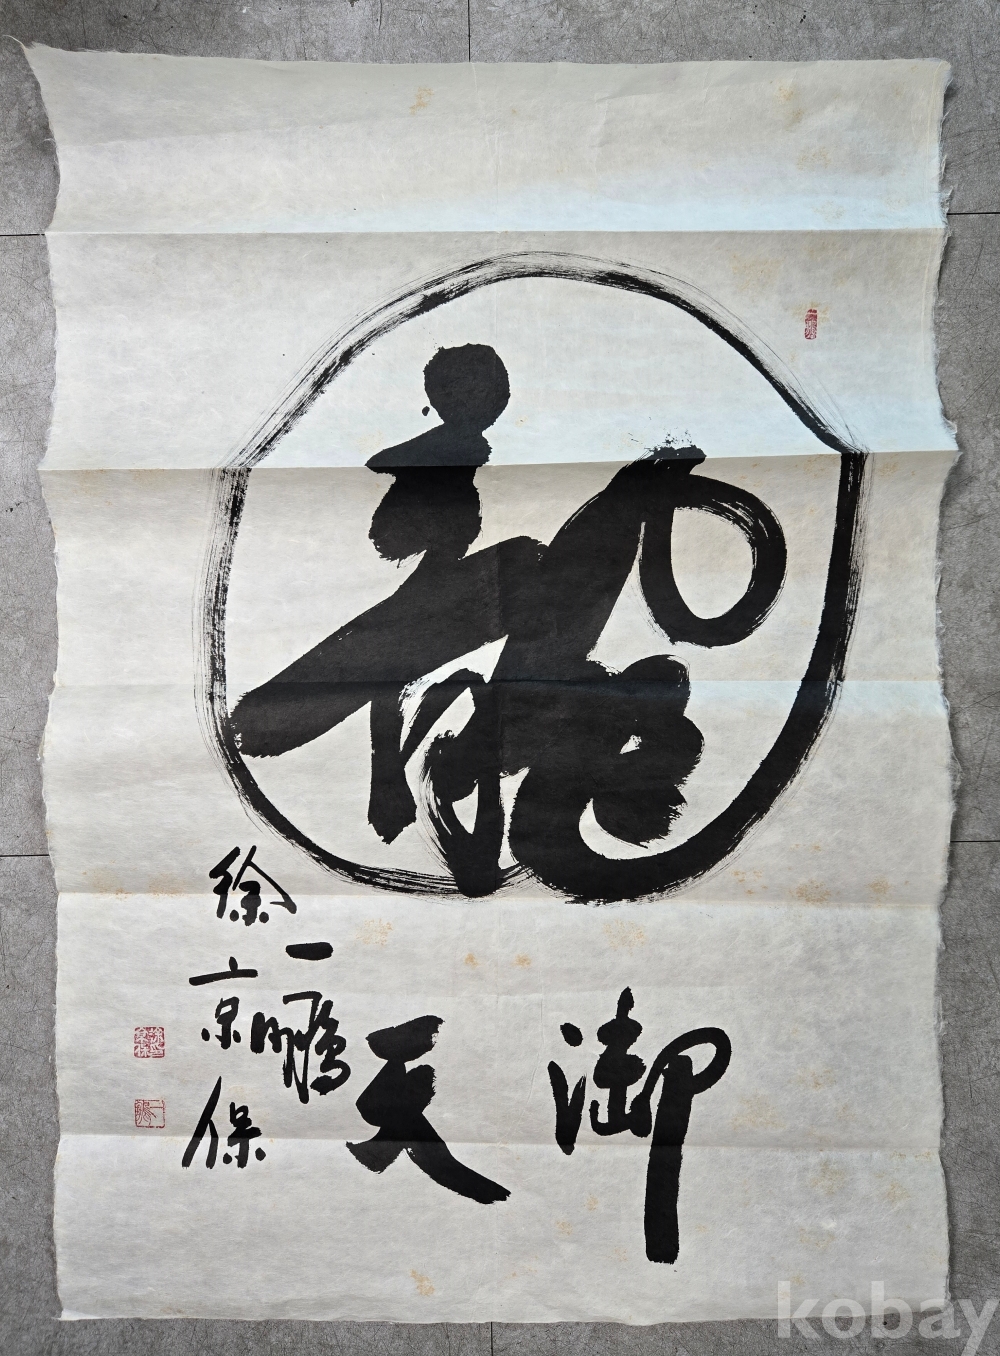 龍
御天
一鵬
徐京保
kobay